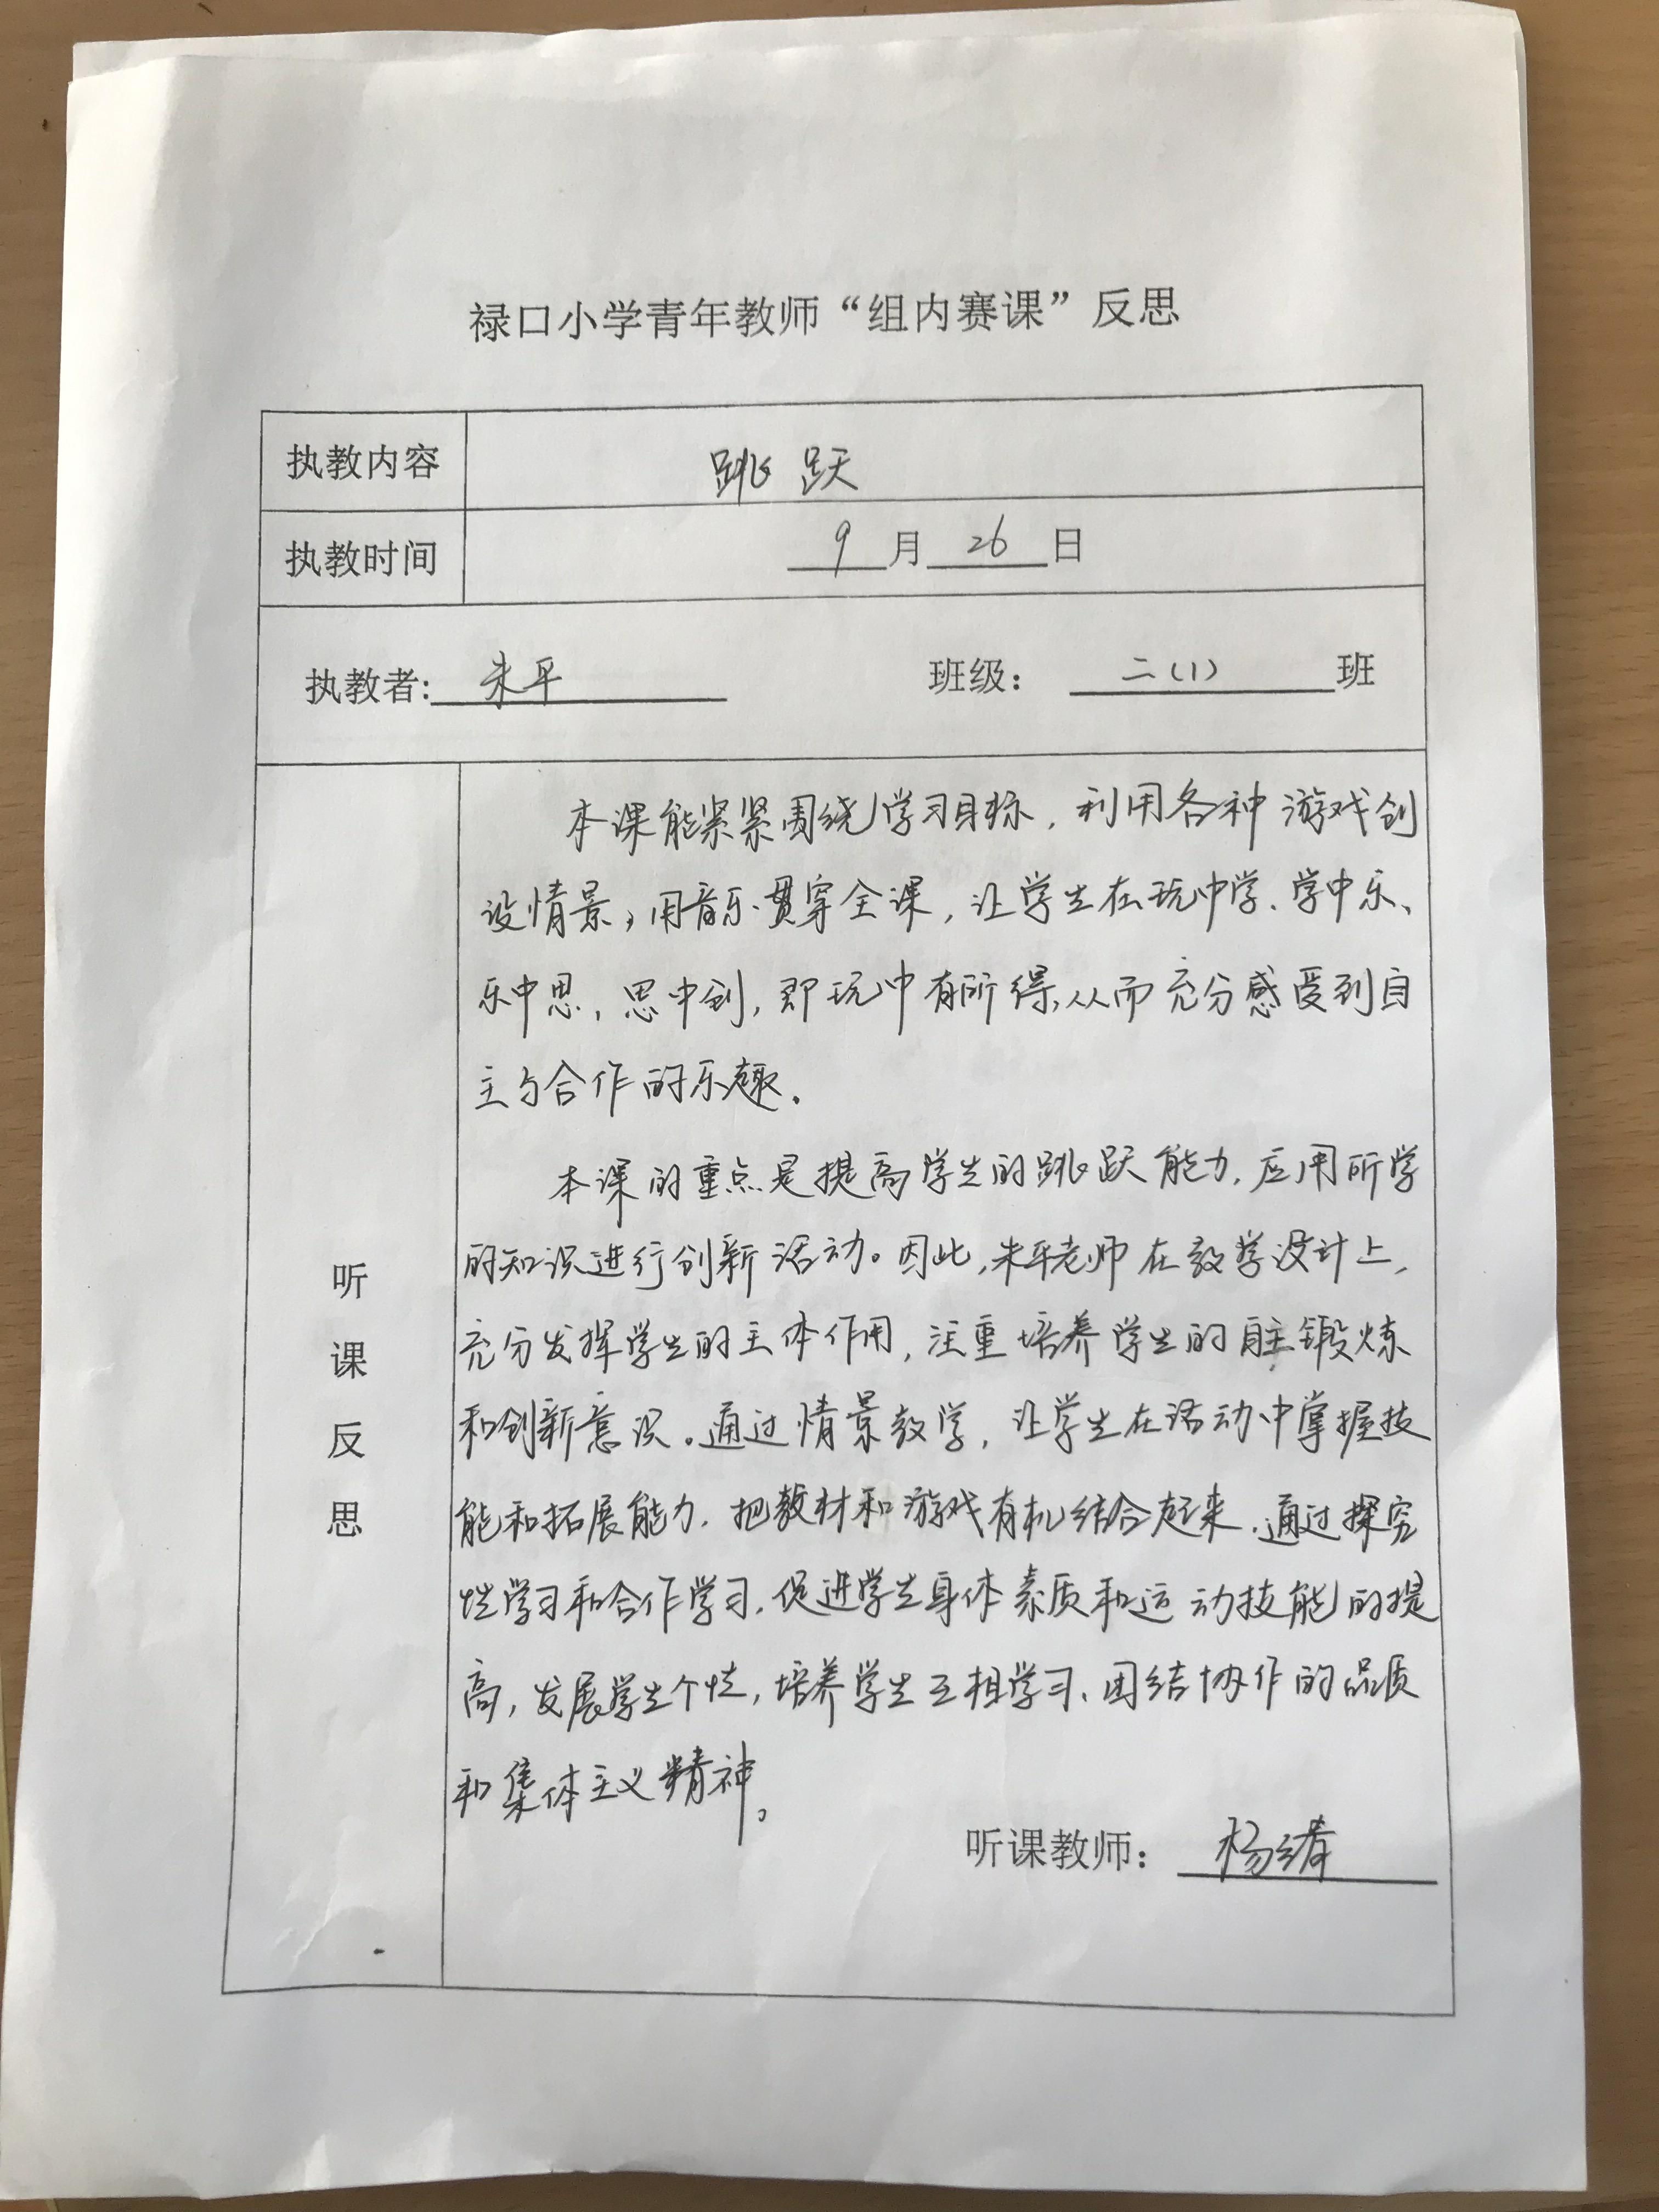 禄口小学青年教师“组内赛课”反思
执教内容 跳跃
执教时间 9月26日
执教者: 朱平 班级： 二（1） 班
本课能紧紧围绕学习目标，利用各种游戏创
设情景，用音乐贯穿全课，让学生在玩中学、学中乐、
乐中思，思中创，即玩中有所得，从而充分感受到自
主与合作的乐趣.
本课的重点是提高学生的跳跃能力，应用所学
的知识进行创新活动。因此，朱平老师在教学设计上，
充分发挥学生的主体作用，注重培养学生的自主锻炼
和创新意识。通过情景教学，让学生在活动中掌握技
能和拓展能力，把教材和游戏有机结合起来，通过探究
性学习和合作学习，促进学生身体素质和运动技能的提
高，发展学生个性，培养学生互相学习、团结协作的品质
和集体主义精神。
听课反思
听课教师： 杨